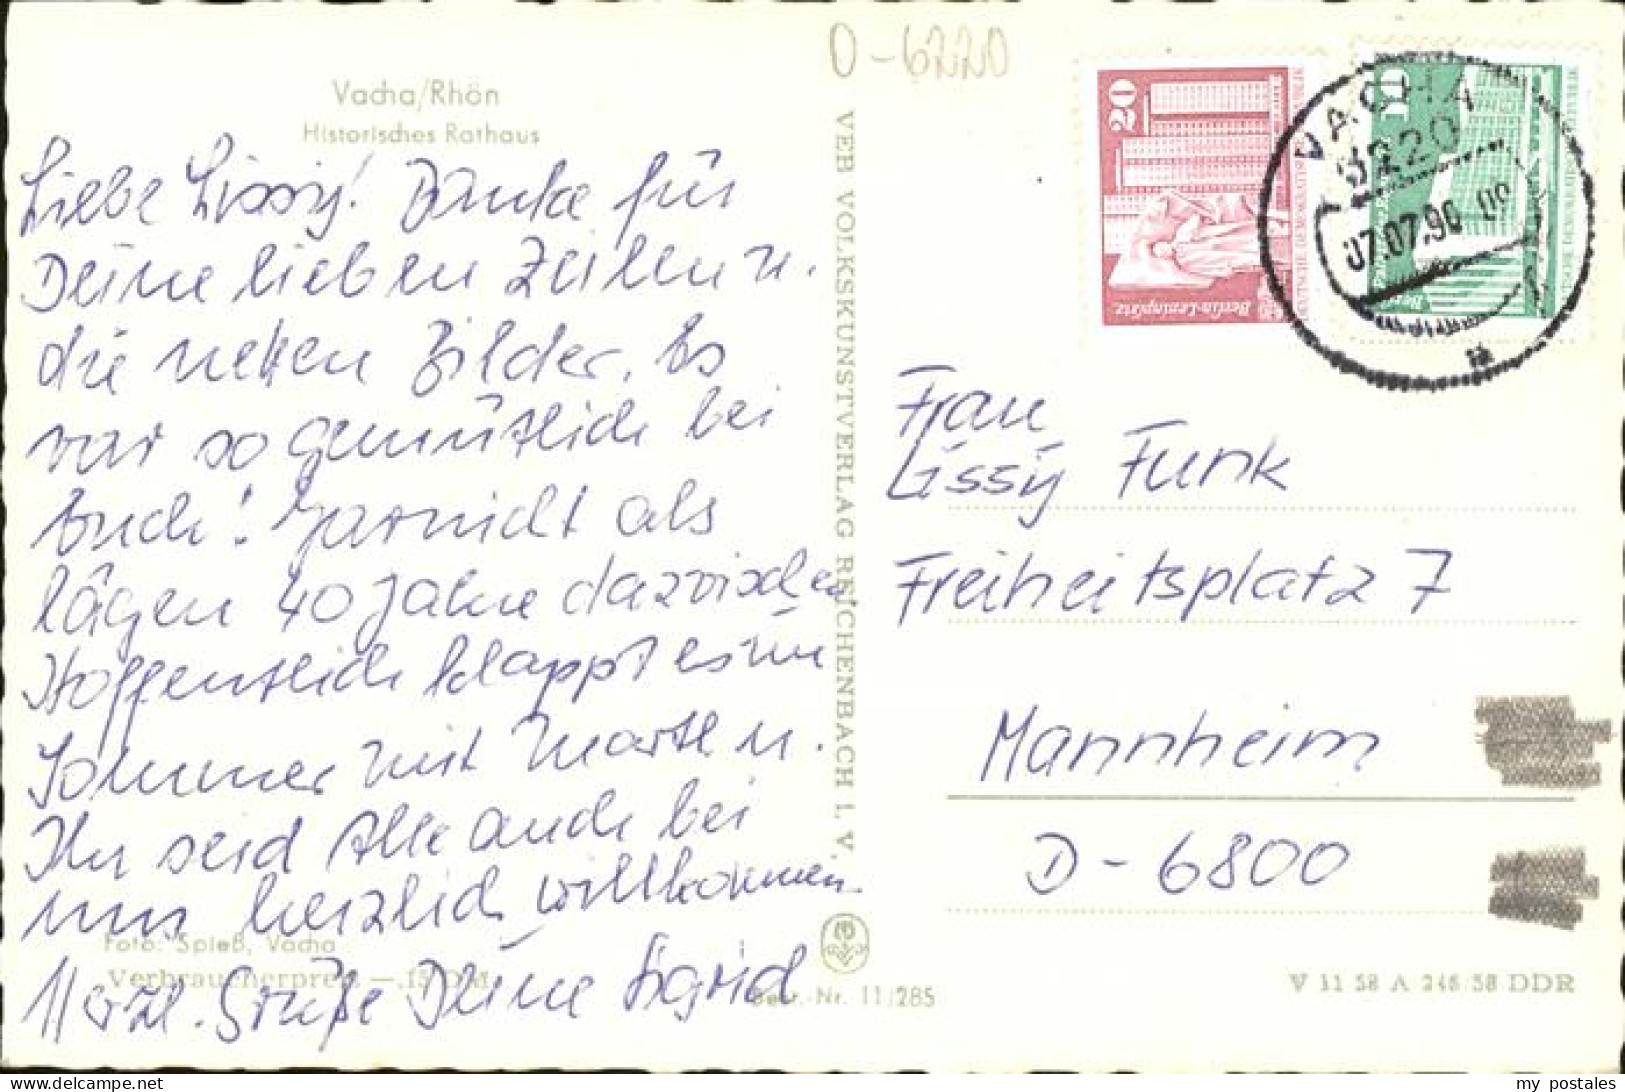 O-6220
Vacha/Rhön
Historisches Rathaus
Liebe Lissy! Danke für
Deine lieben Zeilen u.
die netten Bilder. Es
war so gemütlich bei
Euch! Garnicht als
lägen 40 Jahre dazwischen
Hoffentlich klappt es im
Sommer mit Marth u.
Ihr seid Alle auch bei
uns herzlich willkommen.
Herzl. Grüße Deine Sigrid
Foto: Spieß, Vacha
Verbraucherpreis —.15 DM
Best.-Nr. 11/285
VEB VOLKSKUNSTVERLAG REICHENBACH I. V.
20
Berlin-Leninplatz
DEUTSCHE DEMOKRATISCHE REPUBLIK
10
DEUTSCHE DEMOKRATISCHE REPUBLIK
VACHA
6220
07.07.90
Frau
Lissy Funk
Freiheitsplatz 7
Mannheim
D-6800
V 11 58 A 246/58 DDR
my_postales